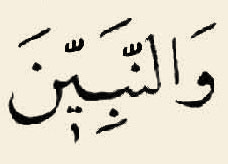 وَالنَّبِيّٖنَ